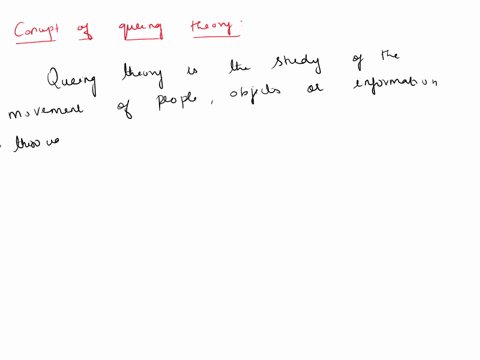 Concept of queing theory:
Queing theory is the study of the
movement of people, objects or information
throu